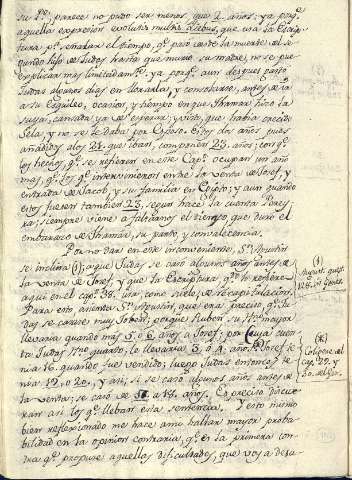 su P.e, parece no pudo ser menos que 2 años; ya porq.e
aquella expresion evolutis multis diebus, que usa la Escri-
tura p.a señalar el tiempo, q.e pasó desde la muerte del se-
gundo hijo de Judas hasta que murio su madre, no se pue
explicar mas limitadam.te, ya porq.e aun despues pasó
Judas algunos dias en llorarla, y consolarse, antes de ir
a su Esquileo, ocasion, y tiempo en que Thamar hizo la
suya, cansada ya de esperar; visto, que havia crecido
Sela, y no se le daba por Esposo. Estos dos años pues
añadidos a los 21. que iban, componen 23 años; con q.e
los hechos, q.e se refieren en este Cap.o ocupan un año
mas, q.e los q.e intervinieron entre la venta de Josef, y
entrada de Jacob, y su familia en Egipto; y aun quando
estos fuesen tambien 23, segun hace la cuenta Perey-
ra; siempre viene a faltarnos el tiempo que duró el
embarazo de Thamar, su parto, y convalecencia.
Por no dar en este inconveniente, S.n Agustin
se inclina (†), a que Judas se casó algunos años antes de
la venta de Josef, y que la Escriptura, q.e lo refiere
aqui en el cap. 38. usa, como suele, de recapitulacion.
Para esto asienta S.n Agustin, que era preciso q.e Ju-
das se casase muy Joben; porque Ruben su h.no mayor
llevaria quando mas 5. o 6. años a Josef; por cuya cuen-
ta Judas h.no quarto, le llevaria 3. o 4 años. Josef te-
nia 16. quando fue vendido; luego Judas entonces te-
nia 19. o 20. y asi, si se casó algunos años antes de
la venta; se casó de 17. o 18. años. Es preciso discur-
ran asi los q.e llevan esta sentencia. Y esto mismo
bien reflexionado me hace amí hallar mayor proba-
bilidad en la opinion contraria, q.e en la primera con-
tra q.e propuse aquellas dificultades, que voy a desa-
(†)
August. quæst.
128. in Gen.
(*)
Colig. ex
cap. 29. y
30. del Gen.